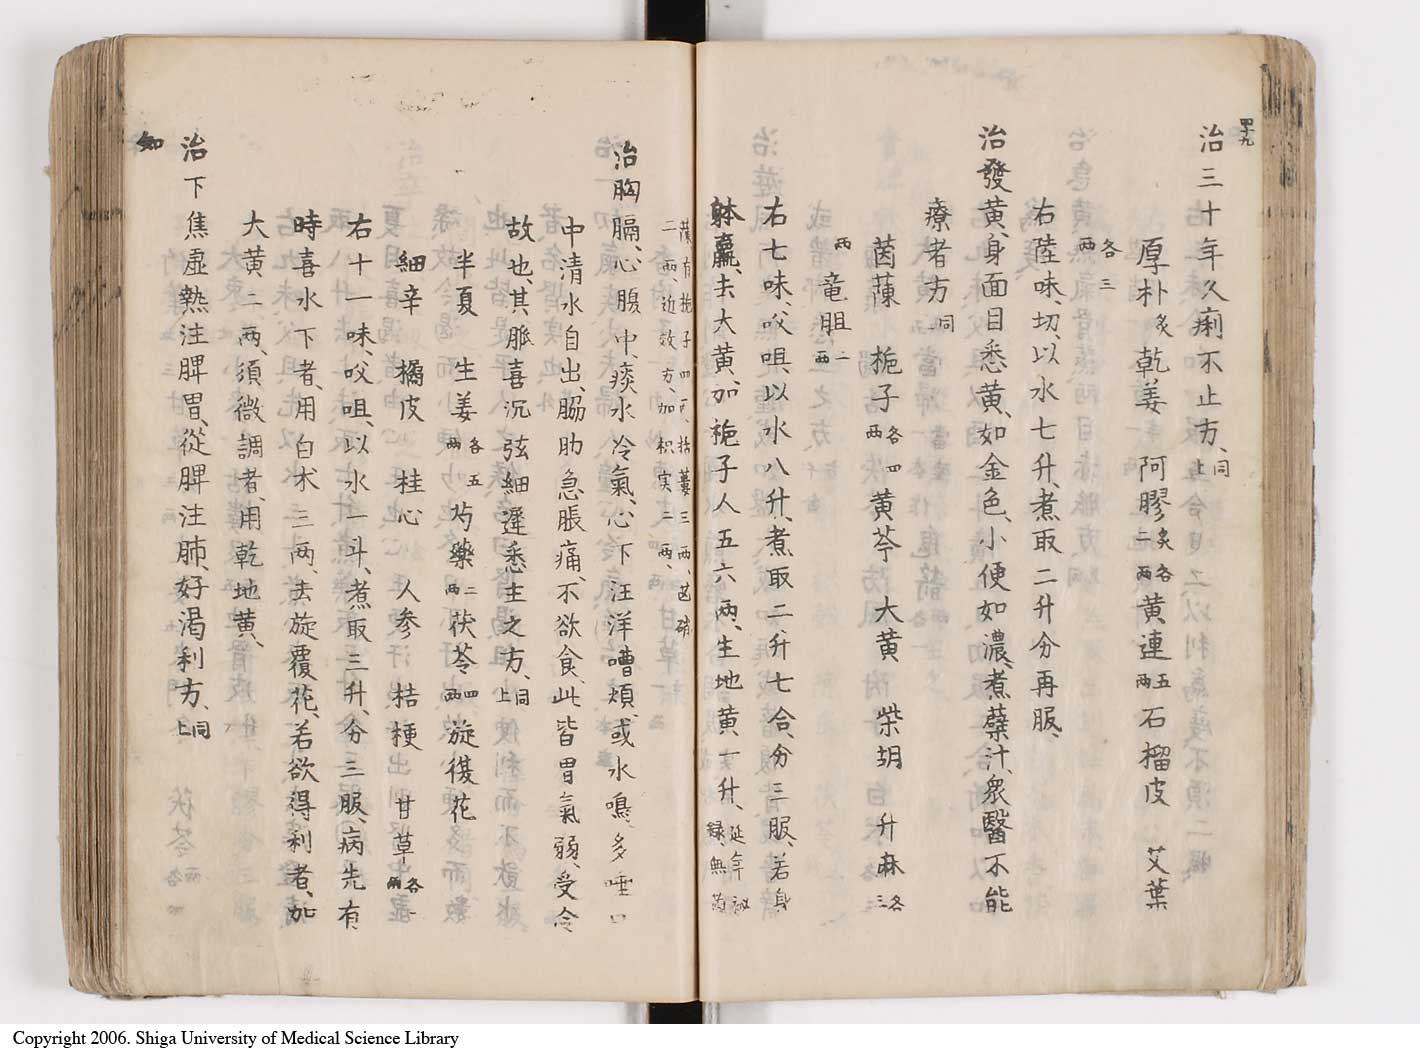 四十九
治三十年久痢不止方、同上
厚朴炙 乾姜 阿膠炙 各二兩 黄連五兩 石榴皮 艾葉
各三兩
右陸味、切、以水七升、煮取二升分再服、
治發黄、身面目悉黄、如金色、小便如濃、煮蘗汁、衆醫不能
療者方、同
茵蔯 梔子各四兩 黄芩 大黄 柴胡 升麻各三
兩 竜胆二兩
右七味、㕮咀、以水八升、煮取二升七合、分三服、若身
躰羸、去大黄、加梔子人五六兩、生地黄一升、延年秘録、無茵
蔯、有梔子四兩、括蔞三兩、芒硝
二兩、近效方、加枳実二兩、
治胸膈、心腹中、痰水冷氣、心下汪洋嘈煩、或水鳴、多唾口
中清水自出、脇肋急脹痛、不欲食、此皆胃氣弱、受冷
故也、其脈喜沉弦細遲悉主之方、同上
半夏 生姜各五兩 芍藥二兩 茯苓四兩 旋復花
細辛 橘皮 桂心 人参 桔梗 甘草各兩
右十一味、㕮咀、以水一斗、煮取三升、分三服、病先有
時喜水下者、用白朮三兩、去旋覆花、若欲得利者、加
大黄二兩、須微調者、用乾地黄、
治下焦虚熱注脾胃、從脾注肺、好渴利方、同上
知
Copyright 2006. Shiga University of Medical Science Library